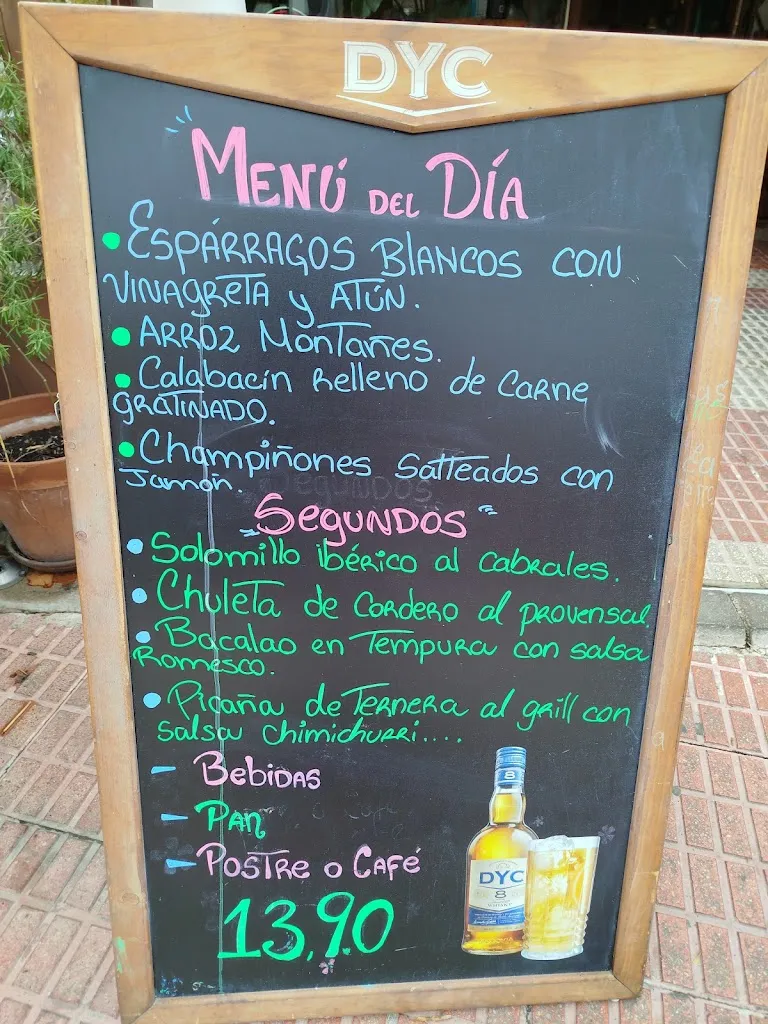 DYC
MENÚ DEL DÍA
• ESPÁRRAGOS BLANCOS CON
VINAGRETA Y ATÚN.
• ARROZ MONTAÑES.
• Calabacín Relleno de Carne
GRATINADO.
• Champiñones Satteados con
Jamón.
Segundos
SEGUNDOS
• Solomillo ibérico al cabrales.
• Chuleta de Cordero al provensal
• Bacalao en Tempura con salsa
Romesco.
• Picaña de Ternera al grill con
salsa chimichurri....
- Bebidas
- Pan
- Postre o Café
13,90
8
DYC
8